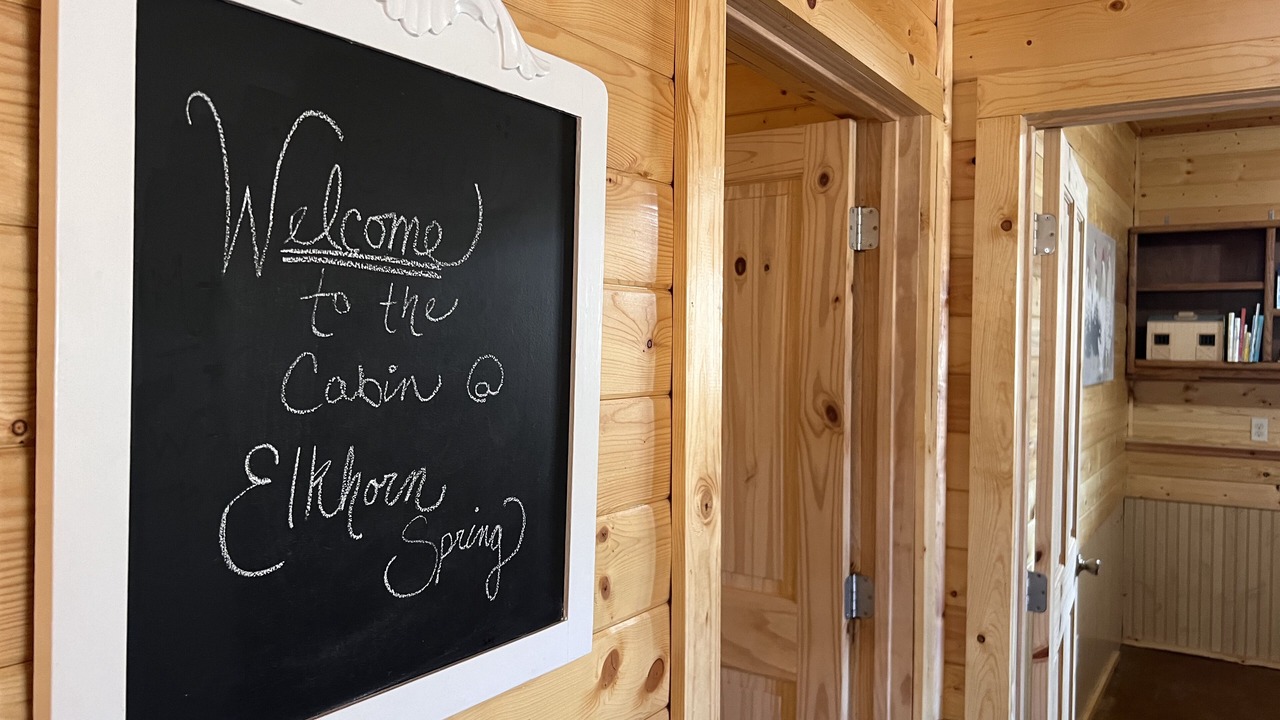 Welcome
to the
Cabin @
Elkhorn
Spring